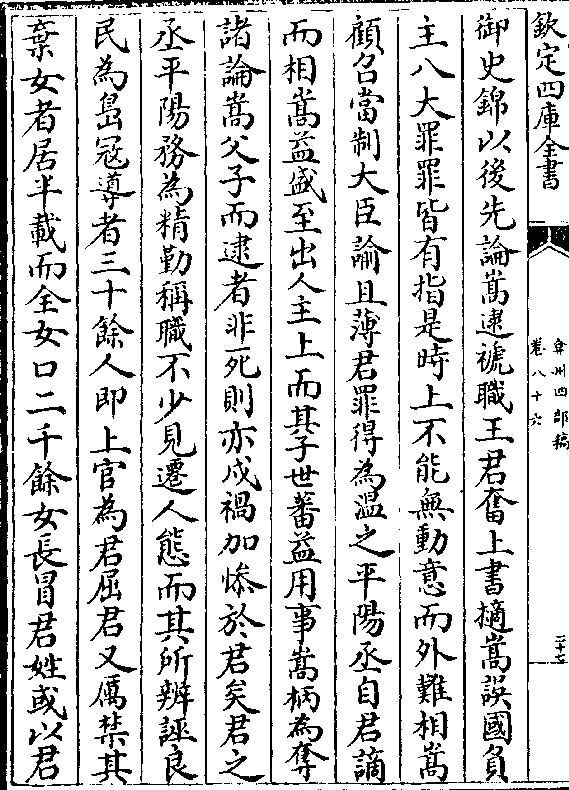 欽定四庫全書
弇州四部稿
卷八十六
二十七
御史錦以後先論嵩逮褫職王君奮上書擿嵩誤國負
主八大罪罪皆有指是時上不能無動意而外難相嵩
顧召當制大臣諭且薄君罪得為溫之平陽丞自君謫
而相嵩益盛至出人主上而其子世蕃益用事嵩柄為奪
諸論嵩父子而逮者非死則亦戍禍加慘於君矣君之
丞平陽務為精勤稱職不少見遷人態而其所辨誣良
民為島冦導者三十餘人即上官為君屈君又厲禁其
棄女者居半載而全女口二千餘女長冒君姓或以君